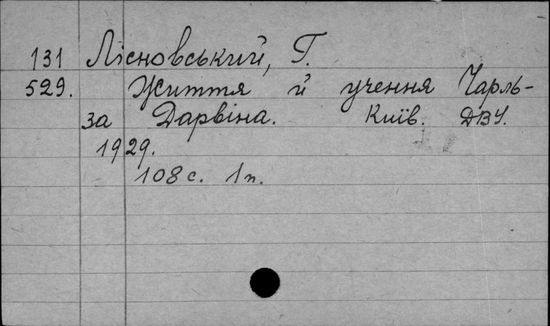 131 Лісновський, Г.
529. Життя й учення Чарль-
за Дарвіна. Київ. ДВУ.
1929.
108 с. 1 п.